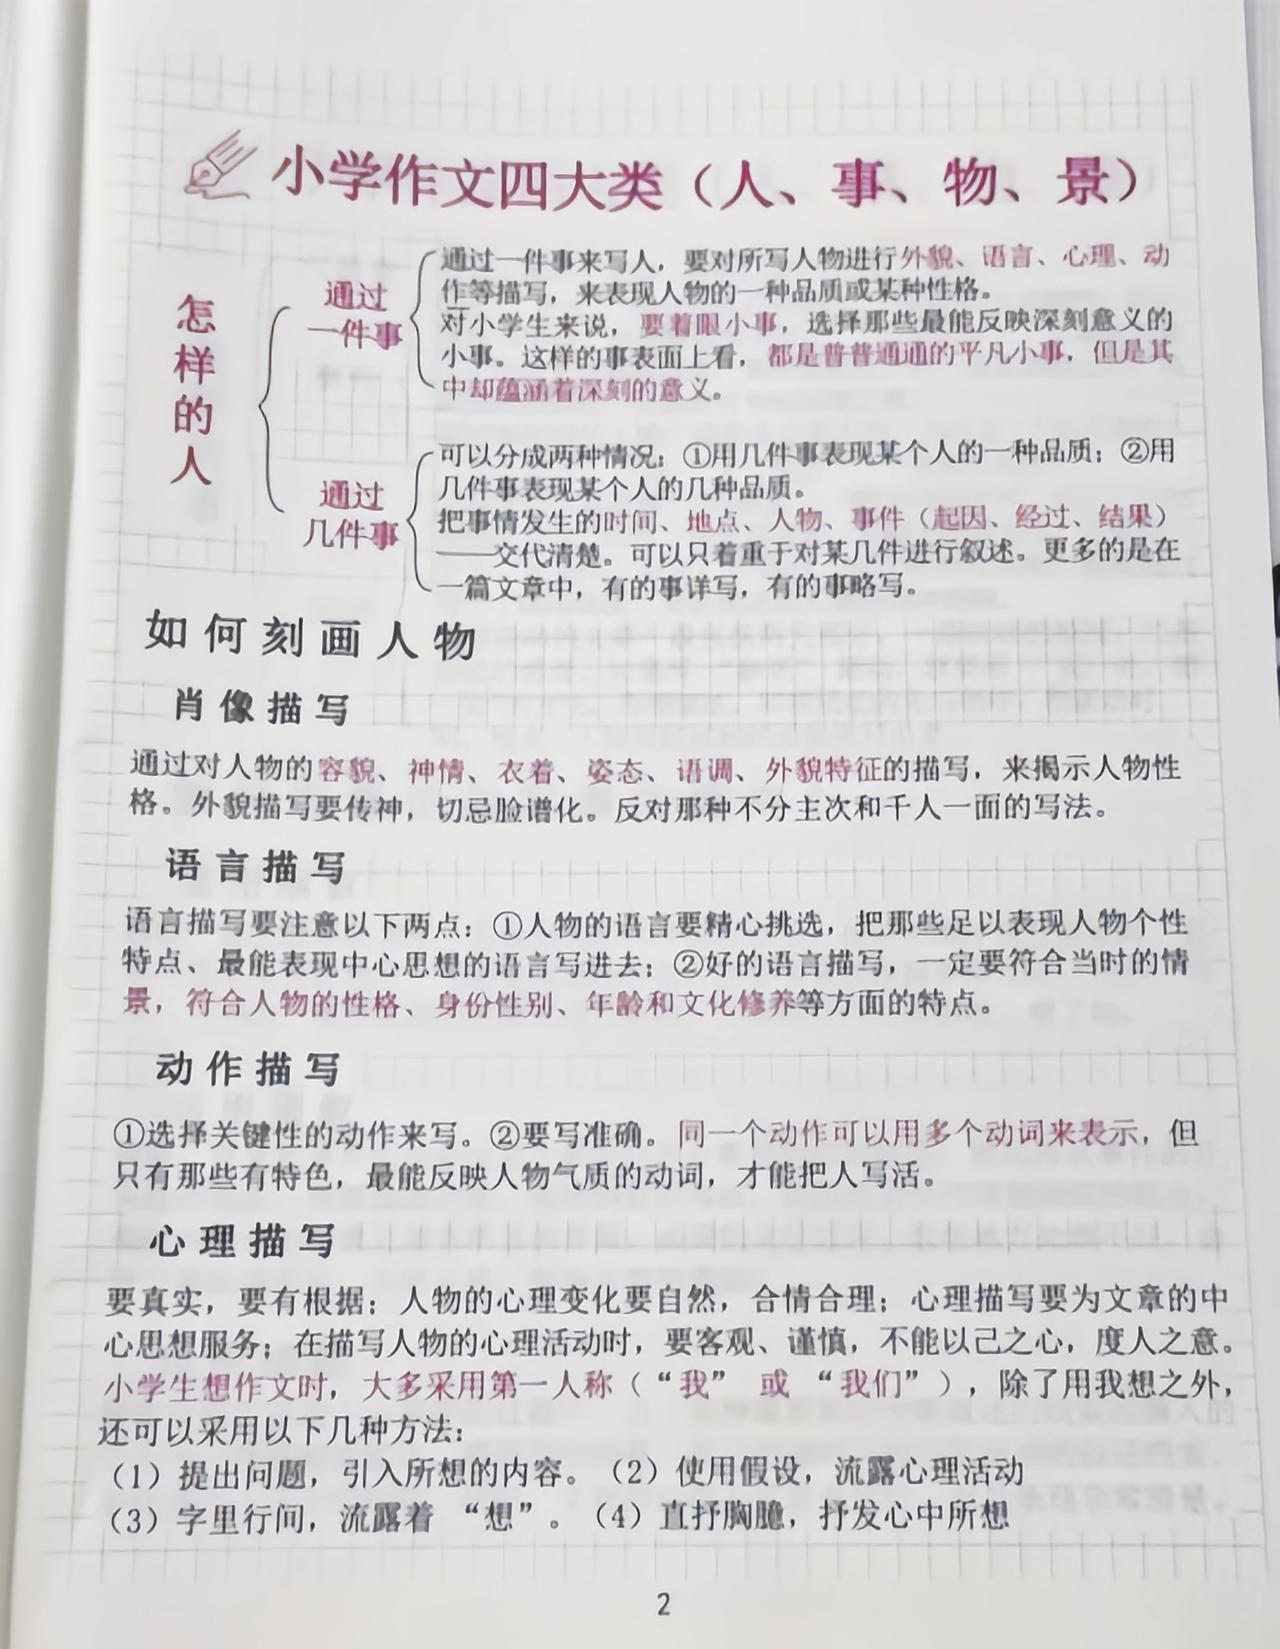 小学作文四大类（人、事、物、景）
怎样的人
通过
一件事
通过一件事来写人，要对所写人物进行外貌、语言、心理、动
作等描写，来表现人物的一种品质或某种性格。
对小学生来说，要着眼小事，选择那些最能反映深刻意义的
小事。这样的事表面上看，都是普普通通的平凡小事，但是其
中却蕴涵着深刻的意义。
通过
几件事
可以分成两种情况：①用几件事表现某个人的一种品质；②用
几件事表现某个人的几种品质。
把事情发生的时间、地点、人物、事件（起因、经过、结果）
——交代清楚。可以只着重于对某几件进行叙述。更多的是在
一篇文章中，有的事详写，有的事略写。
如何刻画人物
肖像描写
通过对人物的容貌、神情、衣着、姿态、语调、外貌特征的描写，来揭示人物性
格。外貌描写要传神，切忌脸谱化。反对那种不分主次和千人一面的写法。
语言描写
语言描写要注意以下两点：①人物的语言要精心挑选，把那些足以表现人物个性
特点、最能表现中心思想的语言写进去；②好的语言描写，一定要符合当时的情
景，符合人物的性格、身份性别、年龄和文化修养等方面的特点。
动作描写
①选择关键性的动作来写。②要写准确。同一个动作可以用多个动词来表示，但
只有那些有特色，最能反映人物气质的动词，才能把人写活。
心理描写
要真实，要有根据；人物的心理变化要自然，合情合理；心理描写要为文章的中
心思想服务；在描写人物的心理活动时，要客观、谨慎，不能以己之心，度人之意。
小学生想作文时，大多采用第一人称（“我” 或 “我们”），除了用我想之外，
还可以采用以下几种方法：
（1）提出问题，引入所想的内容。（2）使用假设，流露心理活动
（3）字里行间，流露着 “想”。（4）直抒胸臆，抒发心中所想
2